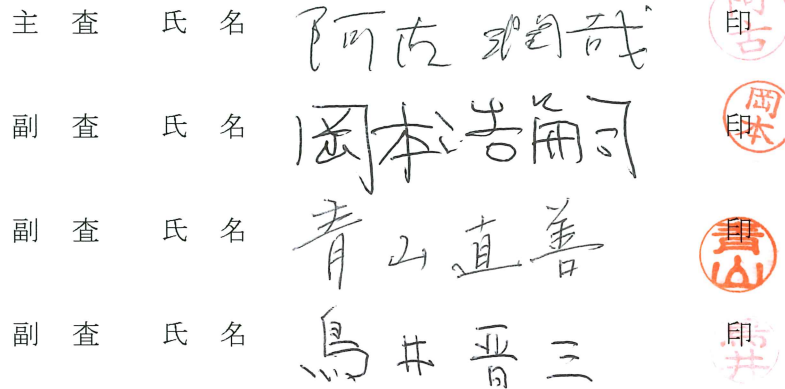 主 査 氏 名 阿古 潤哉 印 阿古
副 査 氏 名 岡本浩嗣 印 岡本
副 査 氏 名 青山直善 印 青山
副 査 氏 名 鳥井晋三 印 鳥井